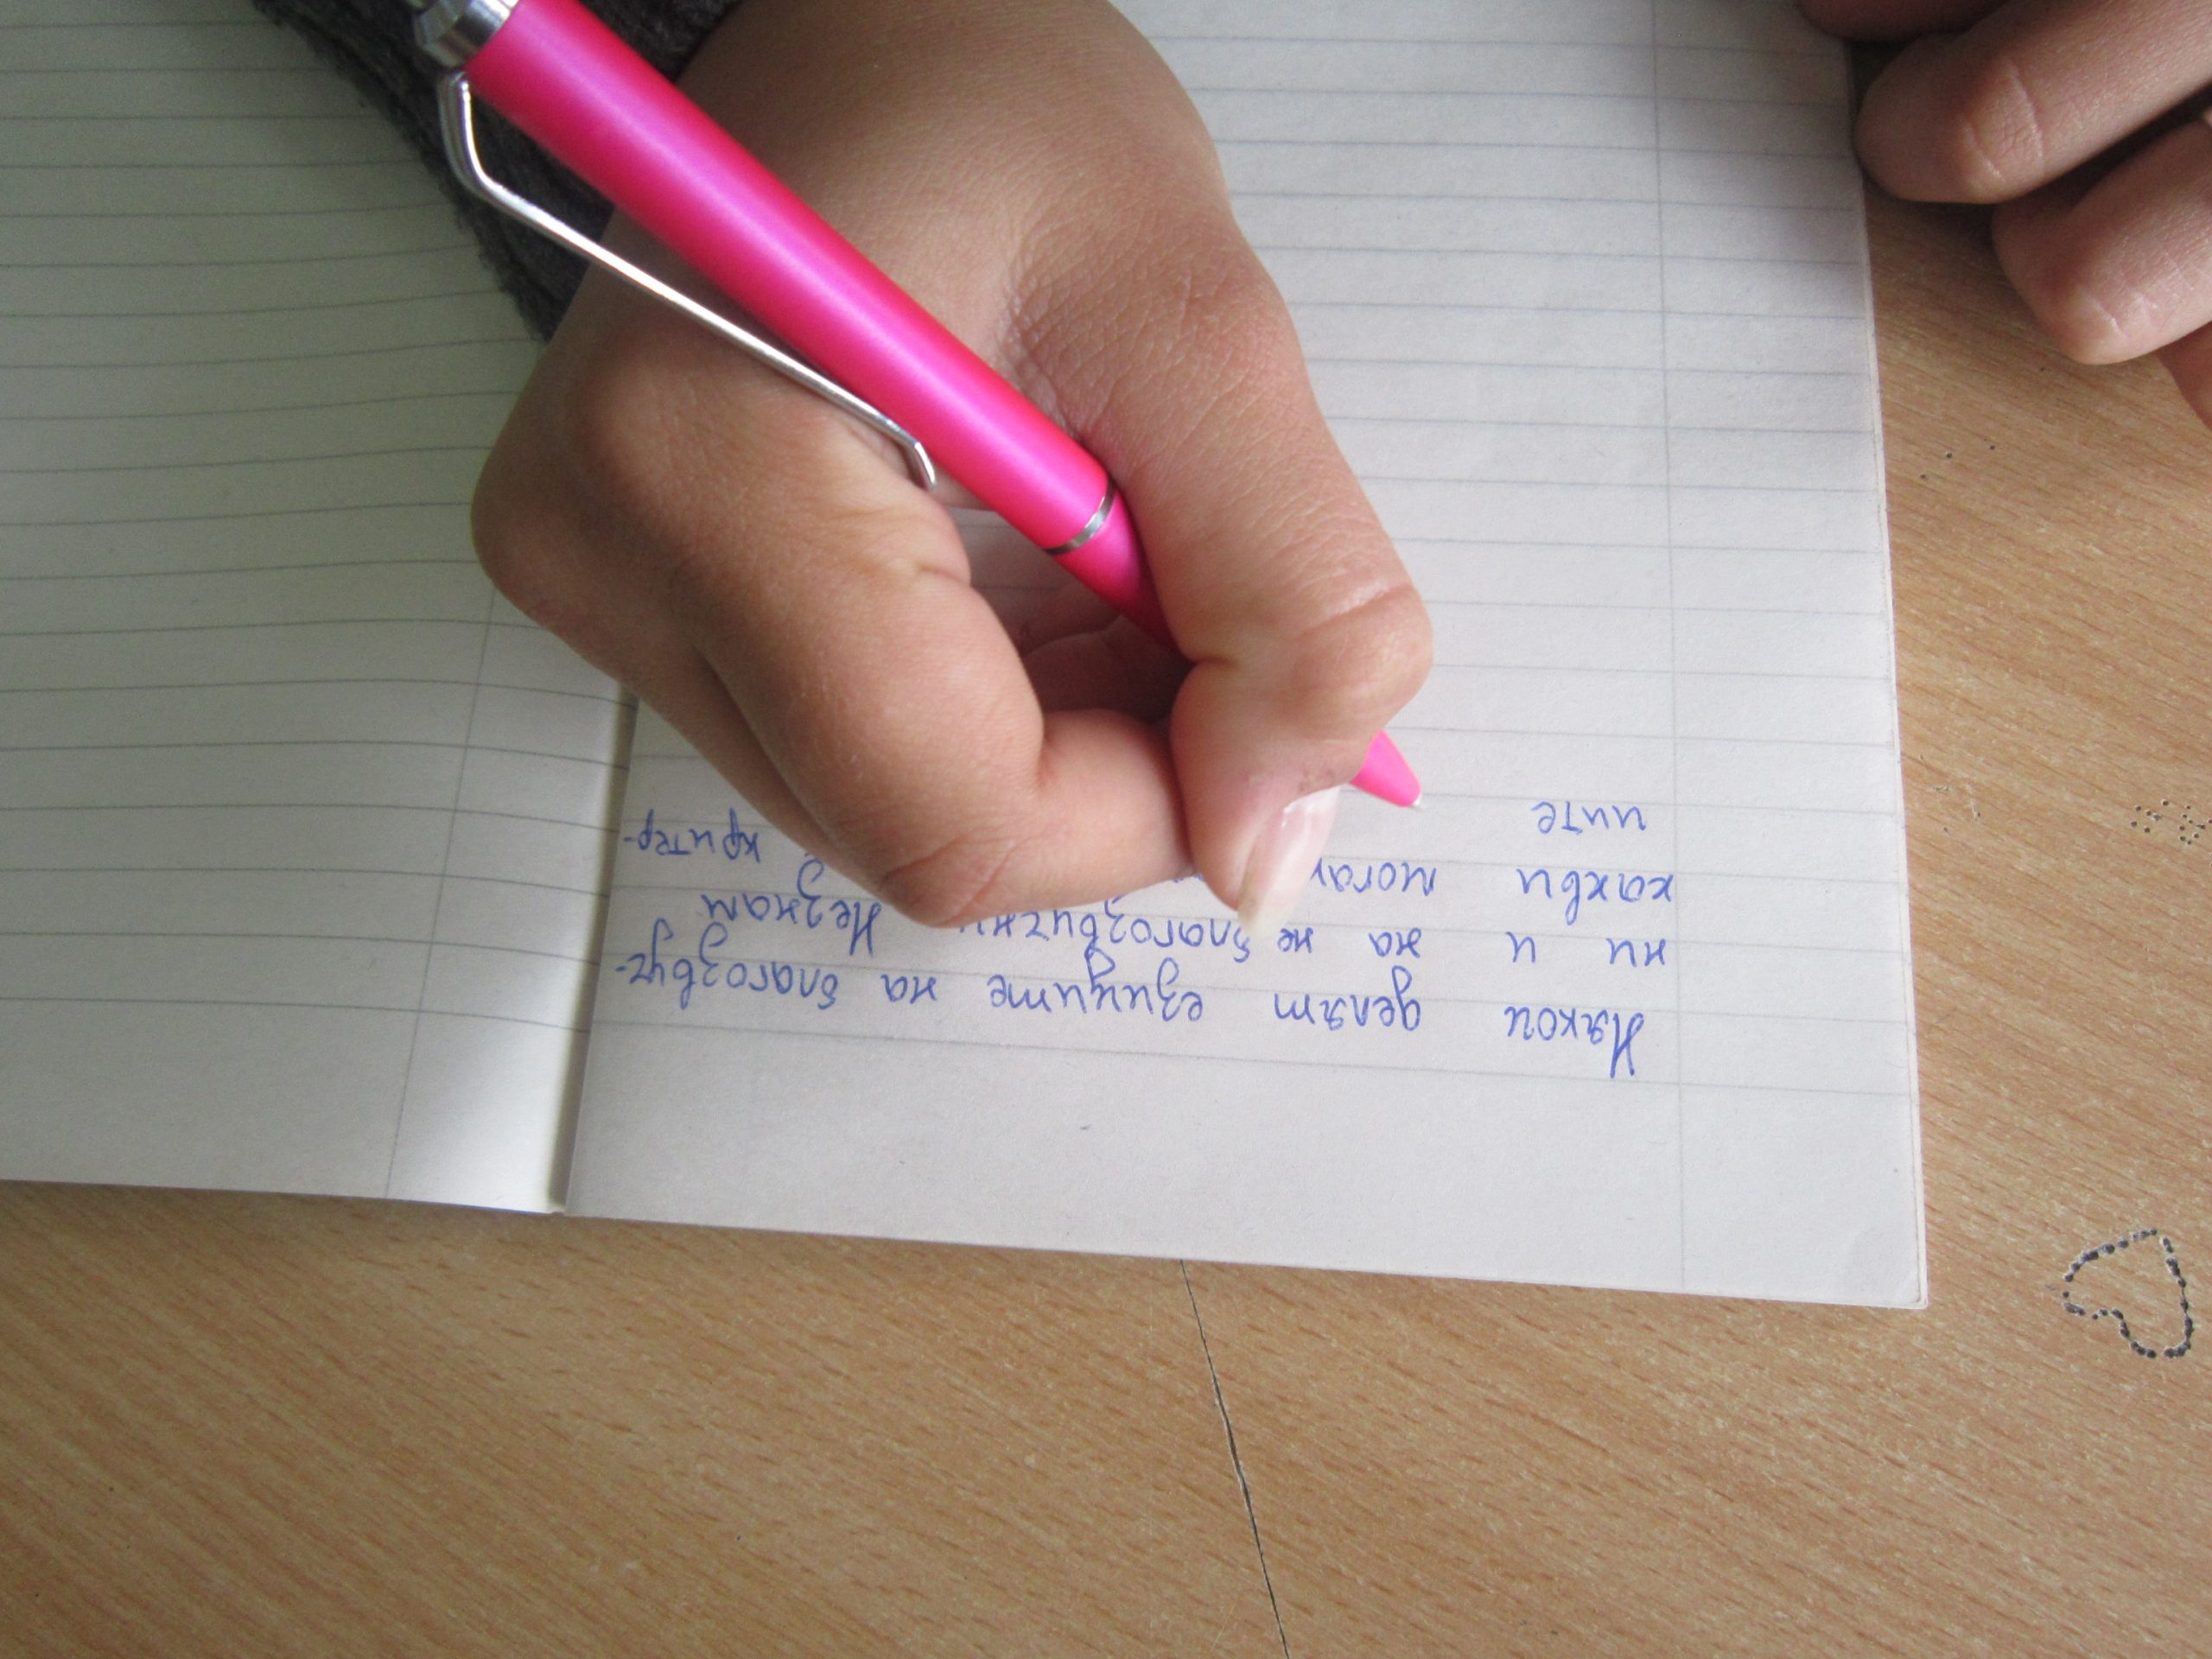 Някои делят езиците на благозвуч-
ни и на не благозвучни Незнам
какви могат критер-
иите